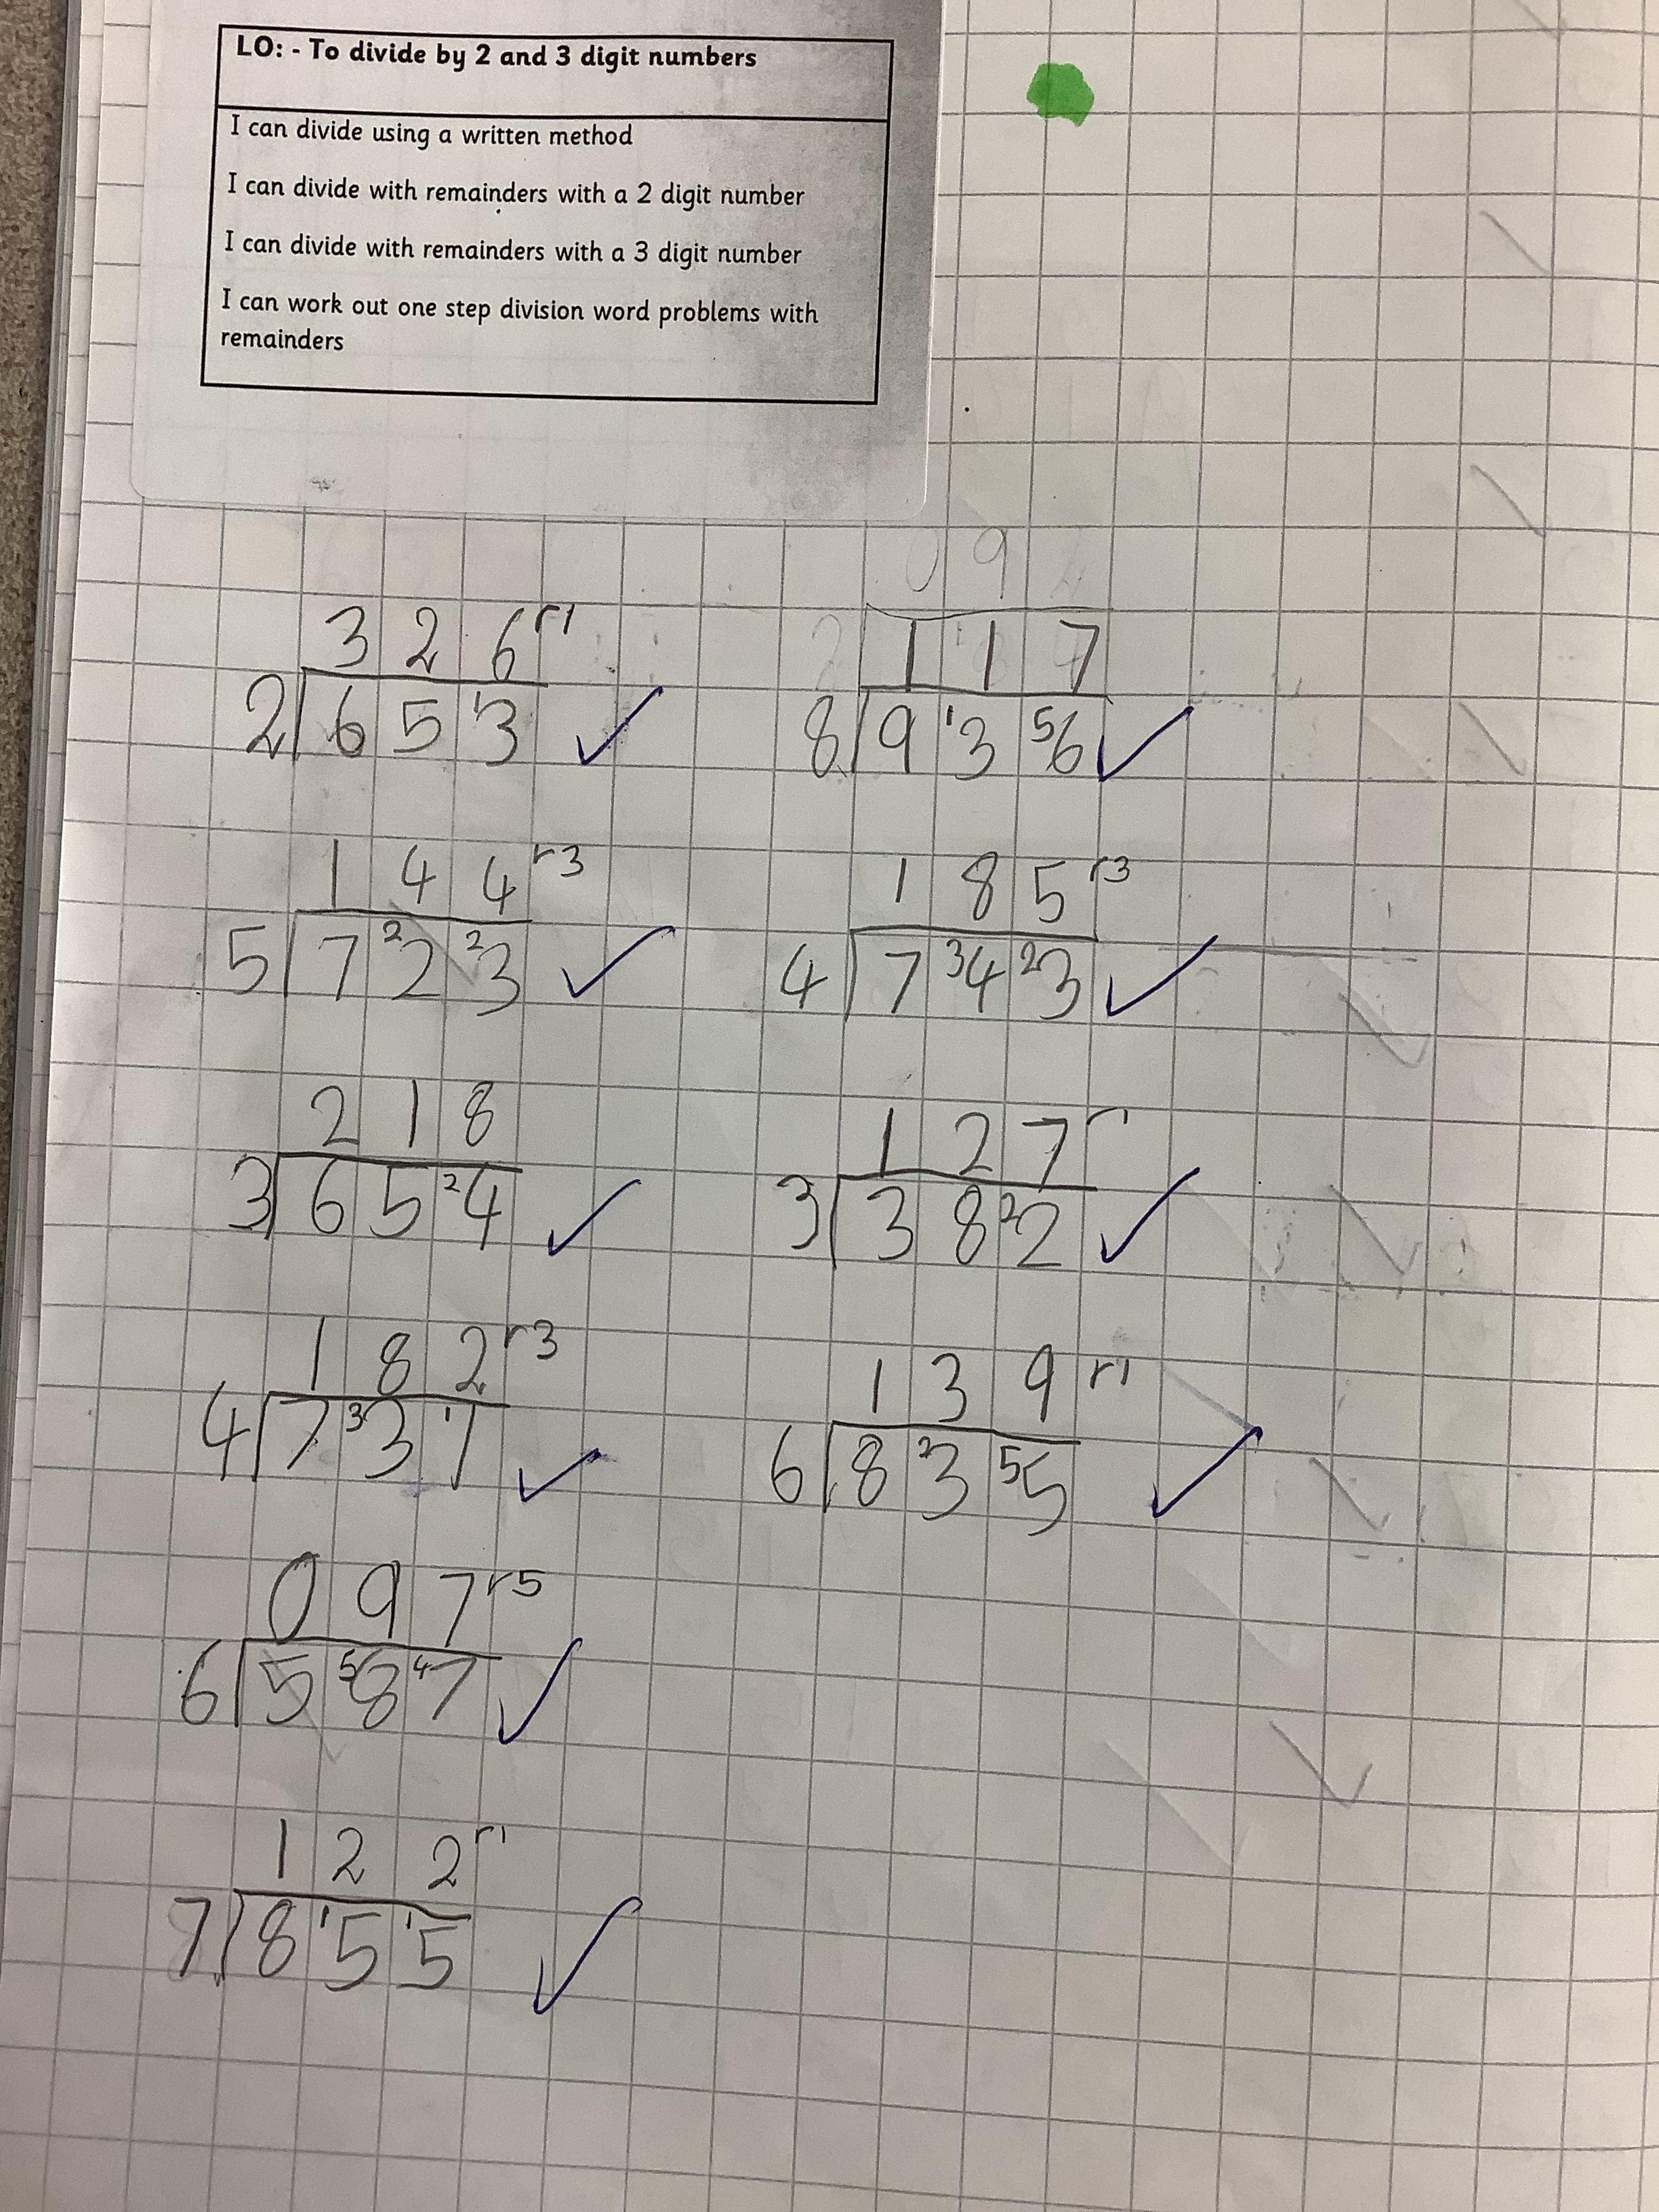 LO: - To divide by 2 and 3 digit numbers
I can divide using a written method
I can divide with remainders with a 2 digit number
I can divide with remainders with a 3 digit number
I can work out one step division word problems with
remainders
3 2 6 r1
2 6 5 13
1 1 7
8 9 13 56
1 4 4 r3
5 7 22 23
1 8 5 r3
4 7 34 23
2 1 8
3 6 5 24
1 2 7 r1
3 3 8 22
1 8 2 r3
4 7 33 11
1 3 9 r1
6 8 23 55
0 9 7 r5
6 5 58 47
1 2 2 r1
7 8 15 15